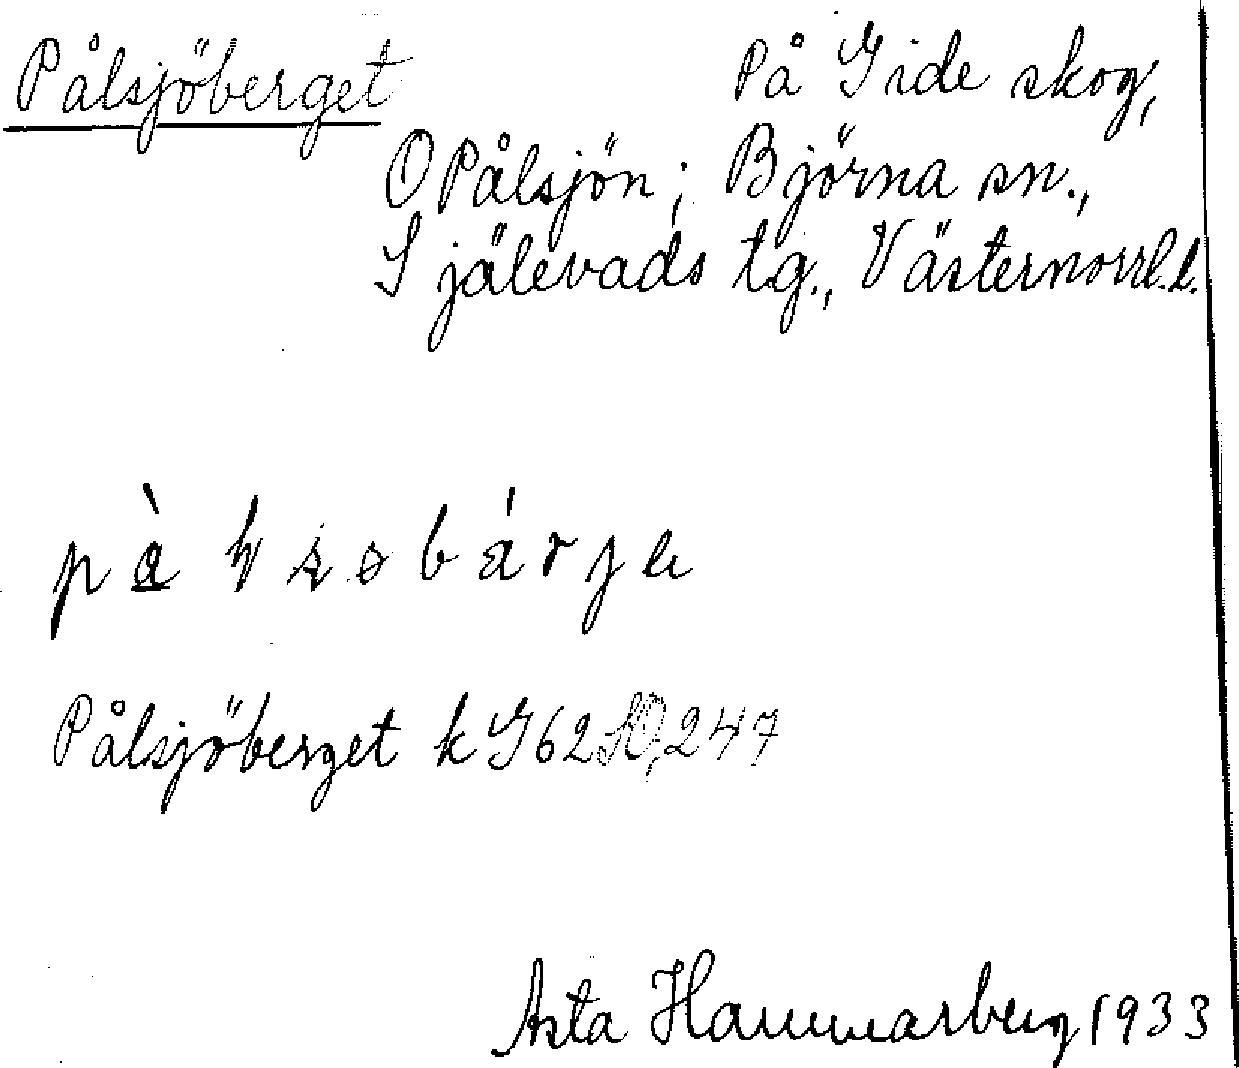 Pålsjöberget På Gide skog,
O Pålsjön; Björna sn.,
Själevads tg., Västernorrl. l.
Pålsjöberget k G62SO,247
Asta Hammarberg 1933